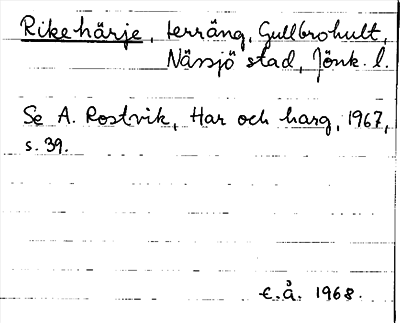 Rikehärje, terräng, Gullbrohult,
Nässjö stad, Jönk. l.
Se A. Rostvik, Har och harg, 1967,
s. 39.
E.Å. 1968.